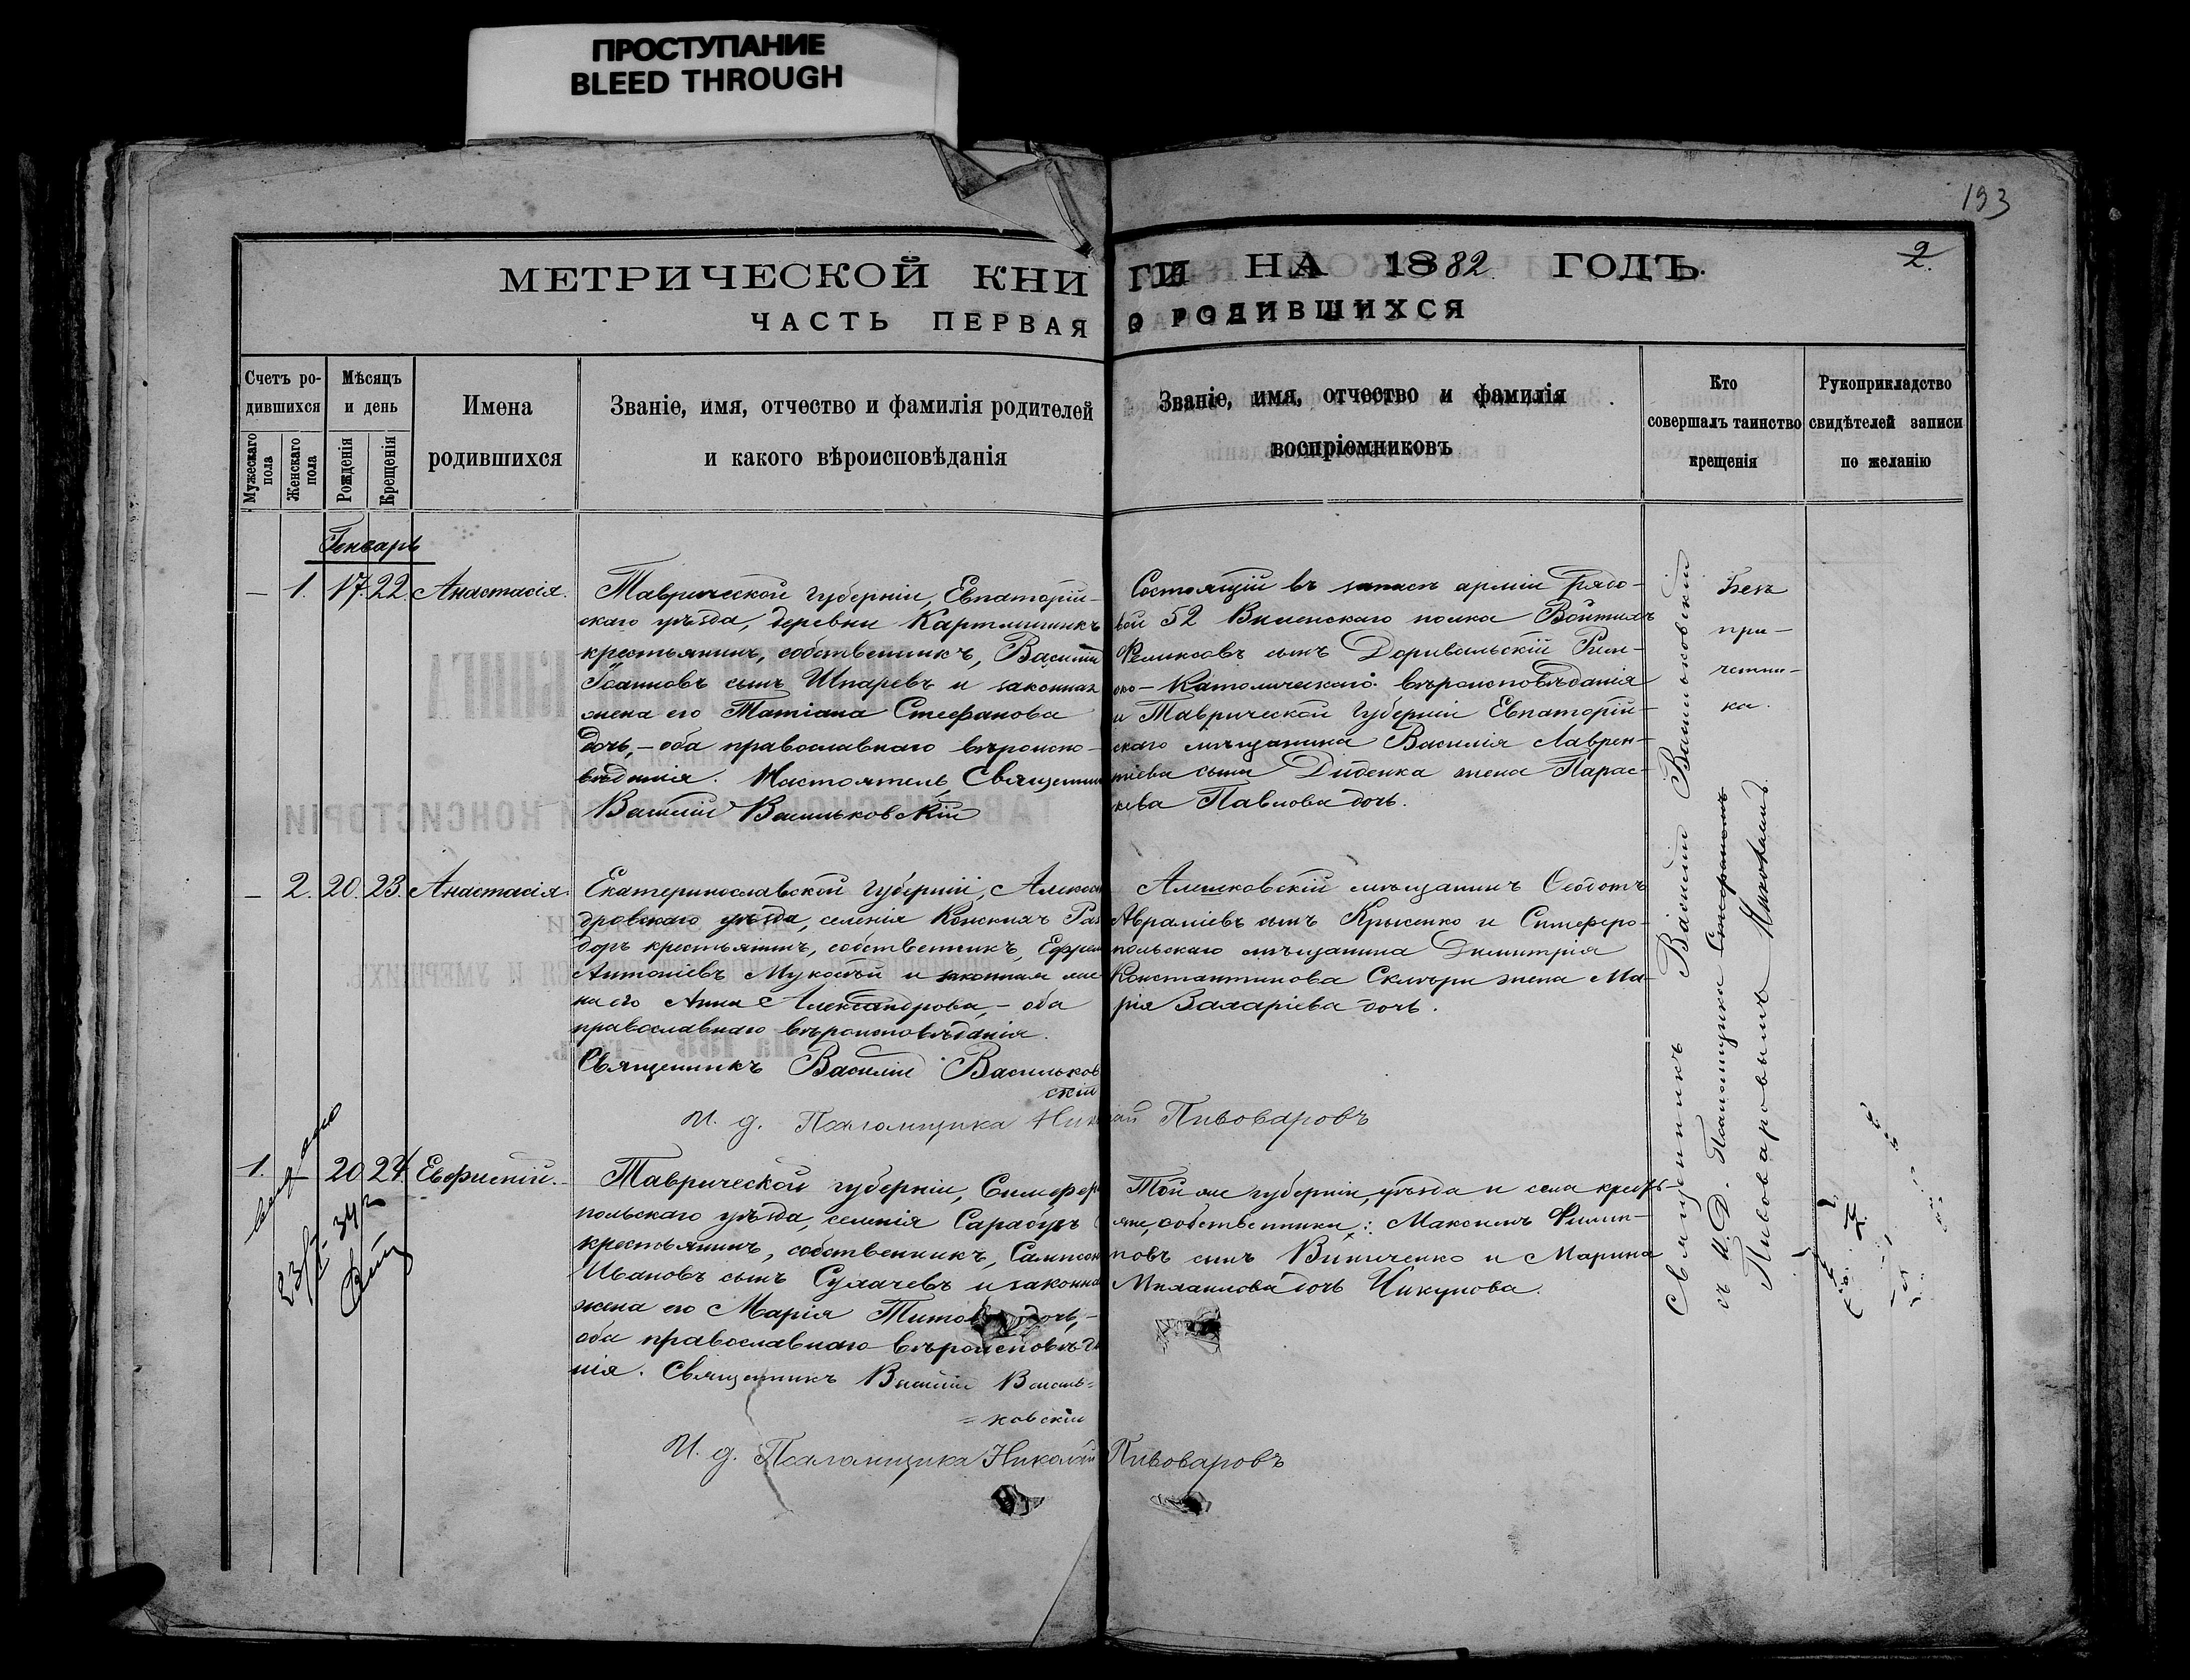 ПРОСТУПАНИЕ
BLEED THROUGH
193
2.
МЕТРИЧЕСКОЙ КНИ ГИ НА 1882 ГОДЪ.
ЧАСТЬ ПЕРВАЯ О РОДИВШИХСЯ
Счетъ ро-
дившихся
Мужескаго пола
Женскаго пола
Мѣсяцъ
и день
Рожденія
Крещенія
Имена
родившихся
Званіе, имя, отчество и фамилія родителей
и какого вѣроисповѣданія
Званіе, имя, отчество и фамилія
воспріемниковъ
Кто
совершалъ таинство
крещенія
Рукоприкладство
свидѣтелей записи
по желанію
Генварь
— 1. 17. 22. Анастасія.
Таврической губерніи, Евпаторій-
скаго уѣзда, деревни
крестьянинъ, собственникъ, Василій
Іоанновъ сынъ Шпаревъ и законная
жена его Татіана Стефанова
дочь, — оба православнаго вѣроиспо-
вѣданія. Настоятель, Священник
Василій Васильковскій
Состоящій въ запасѣ арміи рядо-
вой 52 Виленскаго полка
Феликсовъ сынъ Рим-
ско-Католическаго вѣроисповѣданія
и Таврической губерніи Евпаторій-
скаго мѣщанина Василія Лаврен-
тіева сына Диденка жена Парас-
кева Павлова дочь.
— 2. 20. 23. Анастасія.
Екатеринославской губерніи, Алексан
дровскаго уѣзда, селенія Конскихъ Раз
доръ крестьянинъ, собственникъ, Ефрем
Антоніевъ и законная же
на его Анна Александрова, — оба
православнаго вѣроисповѣданія.
Священникъ Василій Васильков
скій
И. д. Псаломщика Николай Пивоваровъ
Алешковскій мѣщанинъ Ѳеодотъ
Авраміевъ сынъ Крысенко и Симферо-
польскаго мѣщанина Димитрія
Константинова жена Ма-
рія Захаріева дочь.
1. 20. 24. Евфимій.
Таврической губерніи, Симферо
польскаго уѣзда, селенія Сарабузъ
крестьянинъ, собственникъ, Сампсон
Ивановъ сынъ Сулачевъ и законна
жена его Марія Титова дочь, —
оба православнаго вѣроисповѣда
нія. Священникъ Василій Василь=
=ковскій
И. д. Псаломщика Николай Пивоваровъ
Той же губерніи, уѣзда и села кресть-
яне, собственники: Максимъ Филип-
повъ сынъ Винниченко и Марина
Михаилова дочь Чикунова.
Безъ
при-
четни-
ка.
Священникъ Василій Васильковскій
съ И. Д. Псаломщика Стефаномъ
Пивоваровымъ Николаемъ